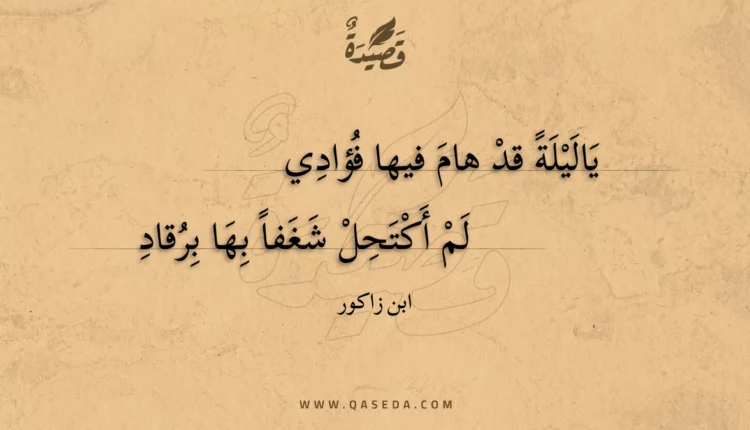 قَصِيدَةٌ
يَالَيْلَةً قدْ هامَ فيها فُؤادِي
لَمْ أَكْتَحِلْ شَغَفاً بِهَا بِرُقادِ
ابن زاكور
WWW.QASEDA.COM